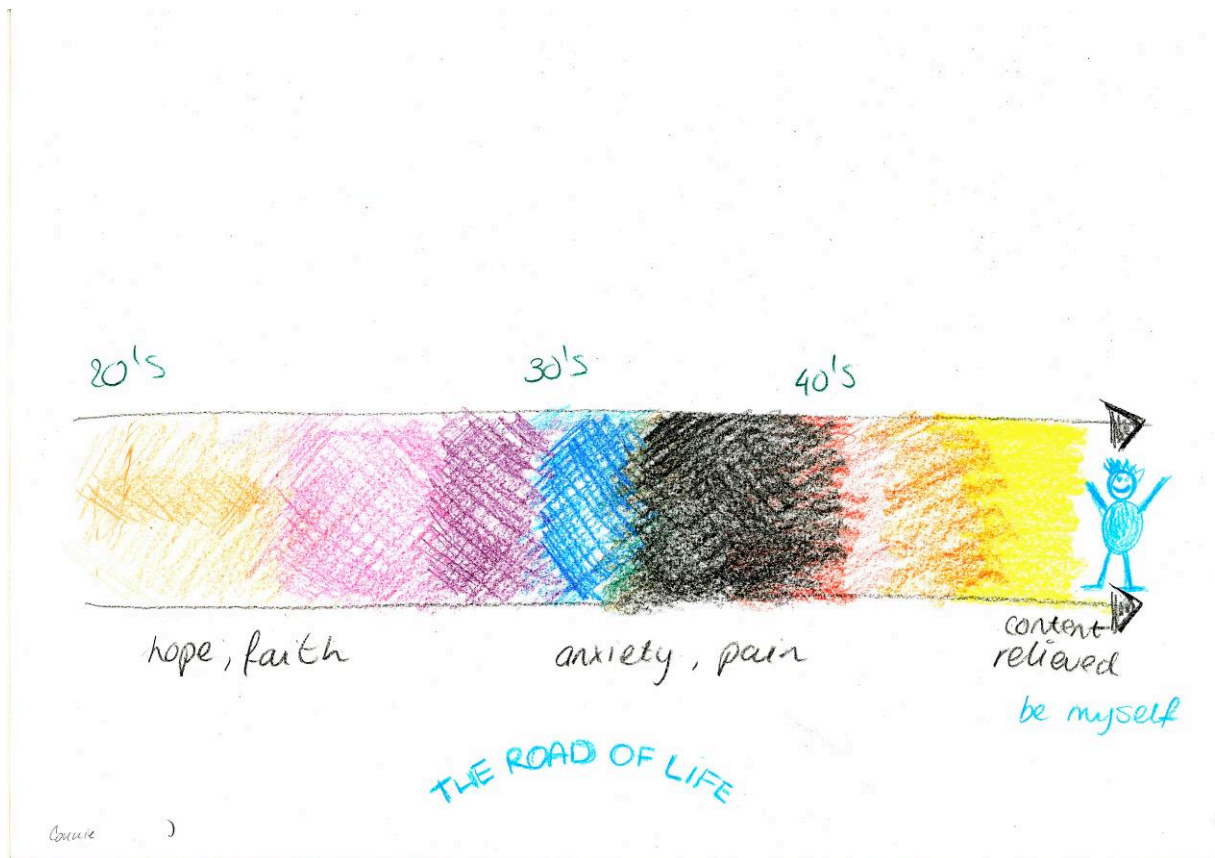 20's 30's 40's
hope, faith anxiety, pain content
relieved
be myself
THE ROAD OF LIFE
Connie )